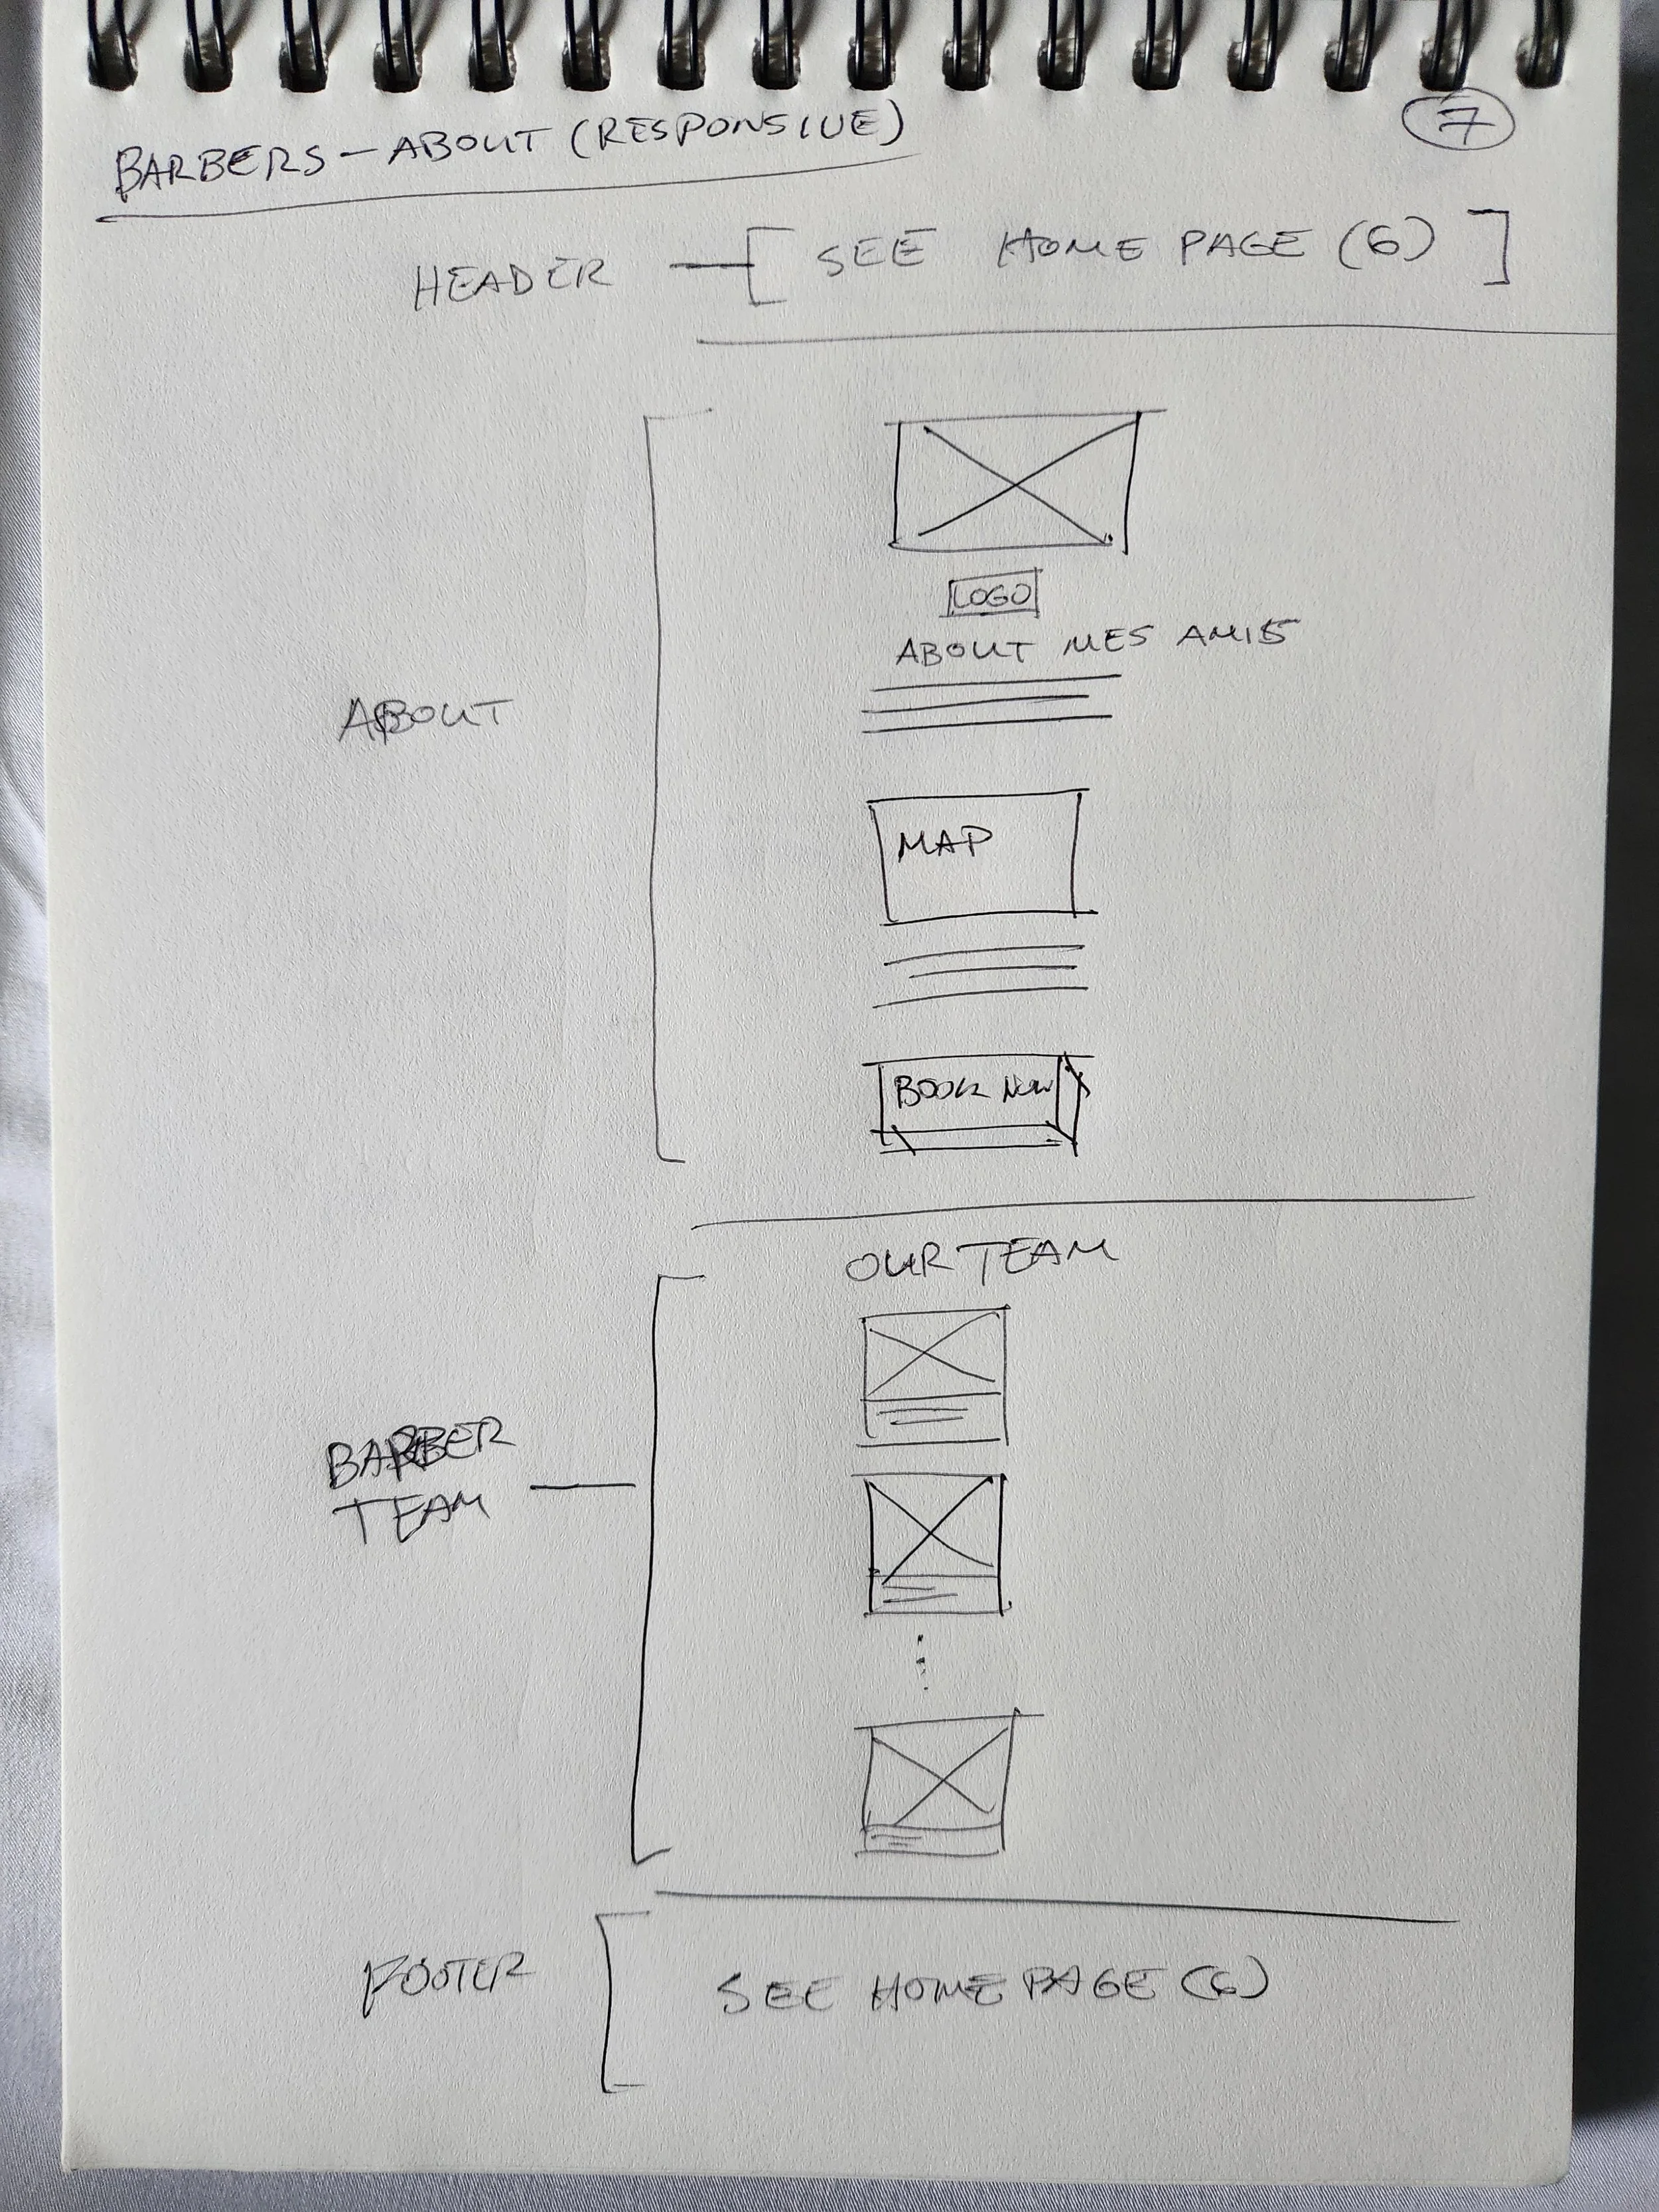 BARBERS - ABOUT (RESPONSIVE)
7
HEADER
SEE HOME PAGE (6)
LOGO
ABOUT MES AMIS
ABOUT
MAP
BOOK NOW
OUR TEAM
BARBER
TEAM
FOOTER
SEE HOME PAGE (6)